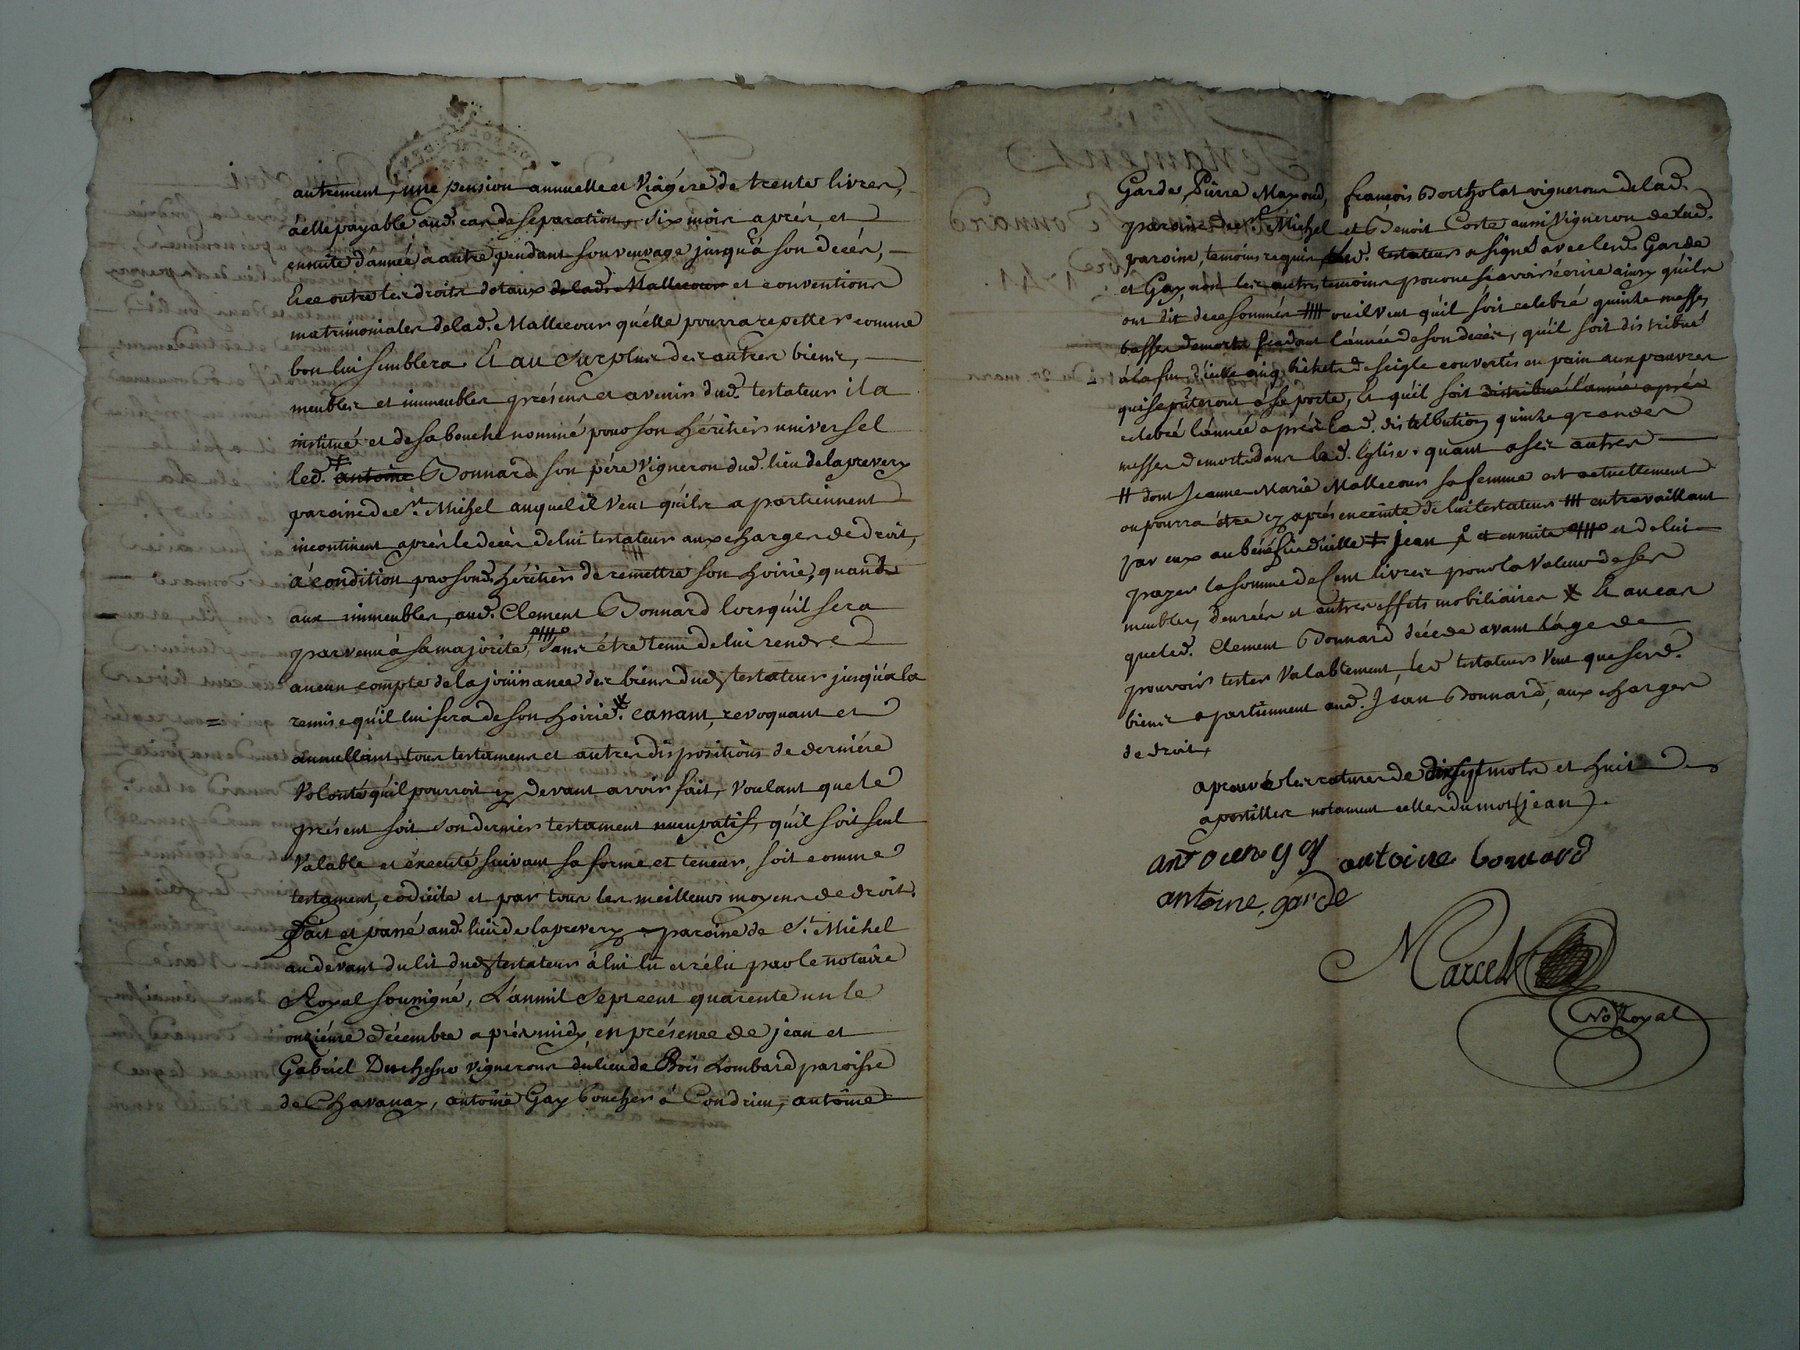 autrement, une pension annuelle et viagére de trente livres,
à elle payable aud. cas de separation, six mois aprés, et
ensuite d'année à autre pendant son veuvage jusqu'à son décés,
Et ce outre les droits dotaux de lad. Mallecour et conventions
matrimoniales de lad. Mallecour qu'elle pourra repetter comme
bon lui semblera Et au surplus des autres biens,
meubles et immeubles présens et avenir dud. testateur il a
institué et de sa bouche nommé pour son héritier universel
led. ⧧ antoine Bonnard son pére vigneron dud. lieu de laprevery
paroisse de St. Michel auquel il veut qu'ils apartiennent
incontinent aprés le decés de lui testateur aux charges de droit,
à condition par sond. héritier de remettre son hoirie, quand
aux immeubles, aud. Clement Bonnard lorsqu'il sera
parvenu à sa majorité, sans être tenu de lui rendre
aucun compte de la jouissance des biens dud. testateur jusqu'à la
remise qu'il lui fera de son hoirie. cassant, revoquant et
annullant tous testamens et autres dispositions de derniére
Volonté qu'il pourroit cy devant avoir fait, voulant que le
présent soit son dernier testament nuncupatif, qu'il soit seul
Valable et éxecuté suivant sa forme et teneur, soit comme
testament, codicile et par tous les meilleurs moyens de droit.
Fait et passé aud. lieu de laprevery paroisse de St. Michel
au devant du lit dud. testateur à lui lu et rélu par le notaire
Royal soussigné, L'an mil sept cent quarente un le
onziéme décembre aprés midy, en présence de jean et
Gabriel Duchesne vignerons du lieu de Bois Lombard paroisse
de Chavanay, antoine Gay boucher à Condrieu, antoine
Garde, Pierre Mayoud, françois Bertholat vignerons de lad.
paroisse de St. Michel et Benoit Corte aussi vigneron de lad.
paroisse, temoins requis, led. testateur a signé avec lesd. Garde
et Gay, non les autres temoins pour ne sçavoir écrire ainsy qu'ils
ont dit de ce sommés ou il veut qu'il soit celebré quinze messes
basses de morts pendant l'année de son decés, qu'il soit distribué
à la fin d'icelle cinq bichets de seigle convertis en pain aux pauvres
qui se pnteront à sa porte, Et qu'il soit distribué l'année aprés
celebré l'année aprés lad. distribution, quinze grandes
messes de morts dans lad. Eglise. quant a ses autres
⧺ dont Jeanne Marie Mallecour sa femme est actuellement
ou pourra être cy aprés enceinte de lui testateur en travaillant
par eux au bénéfice d'icelle ⧧ jean et ensuite et de lui
payer la somme de Cent livres pour la Valeur de ses
meubles, denrées et autres effets mobiliaires Et au cas
que led. Clement Bonnard décede avant l'âge de
pouvoir tester Valablement, led testateur veut que sesd.
biens apartiennent aud. Jean Bonnard, aux charges
de droit,
aprouvé les ratures de dixsept mots et huit
apostilles notament celle du mot (jean).
antoine gay antoine bonnard
antoine garde
Marcel
No Royal